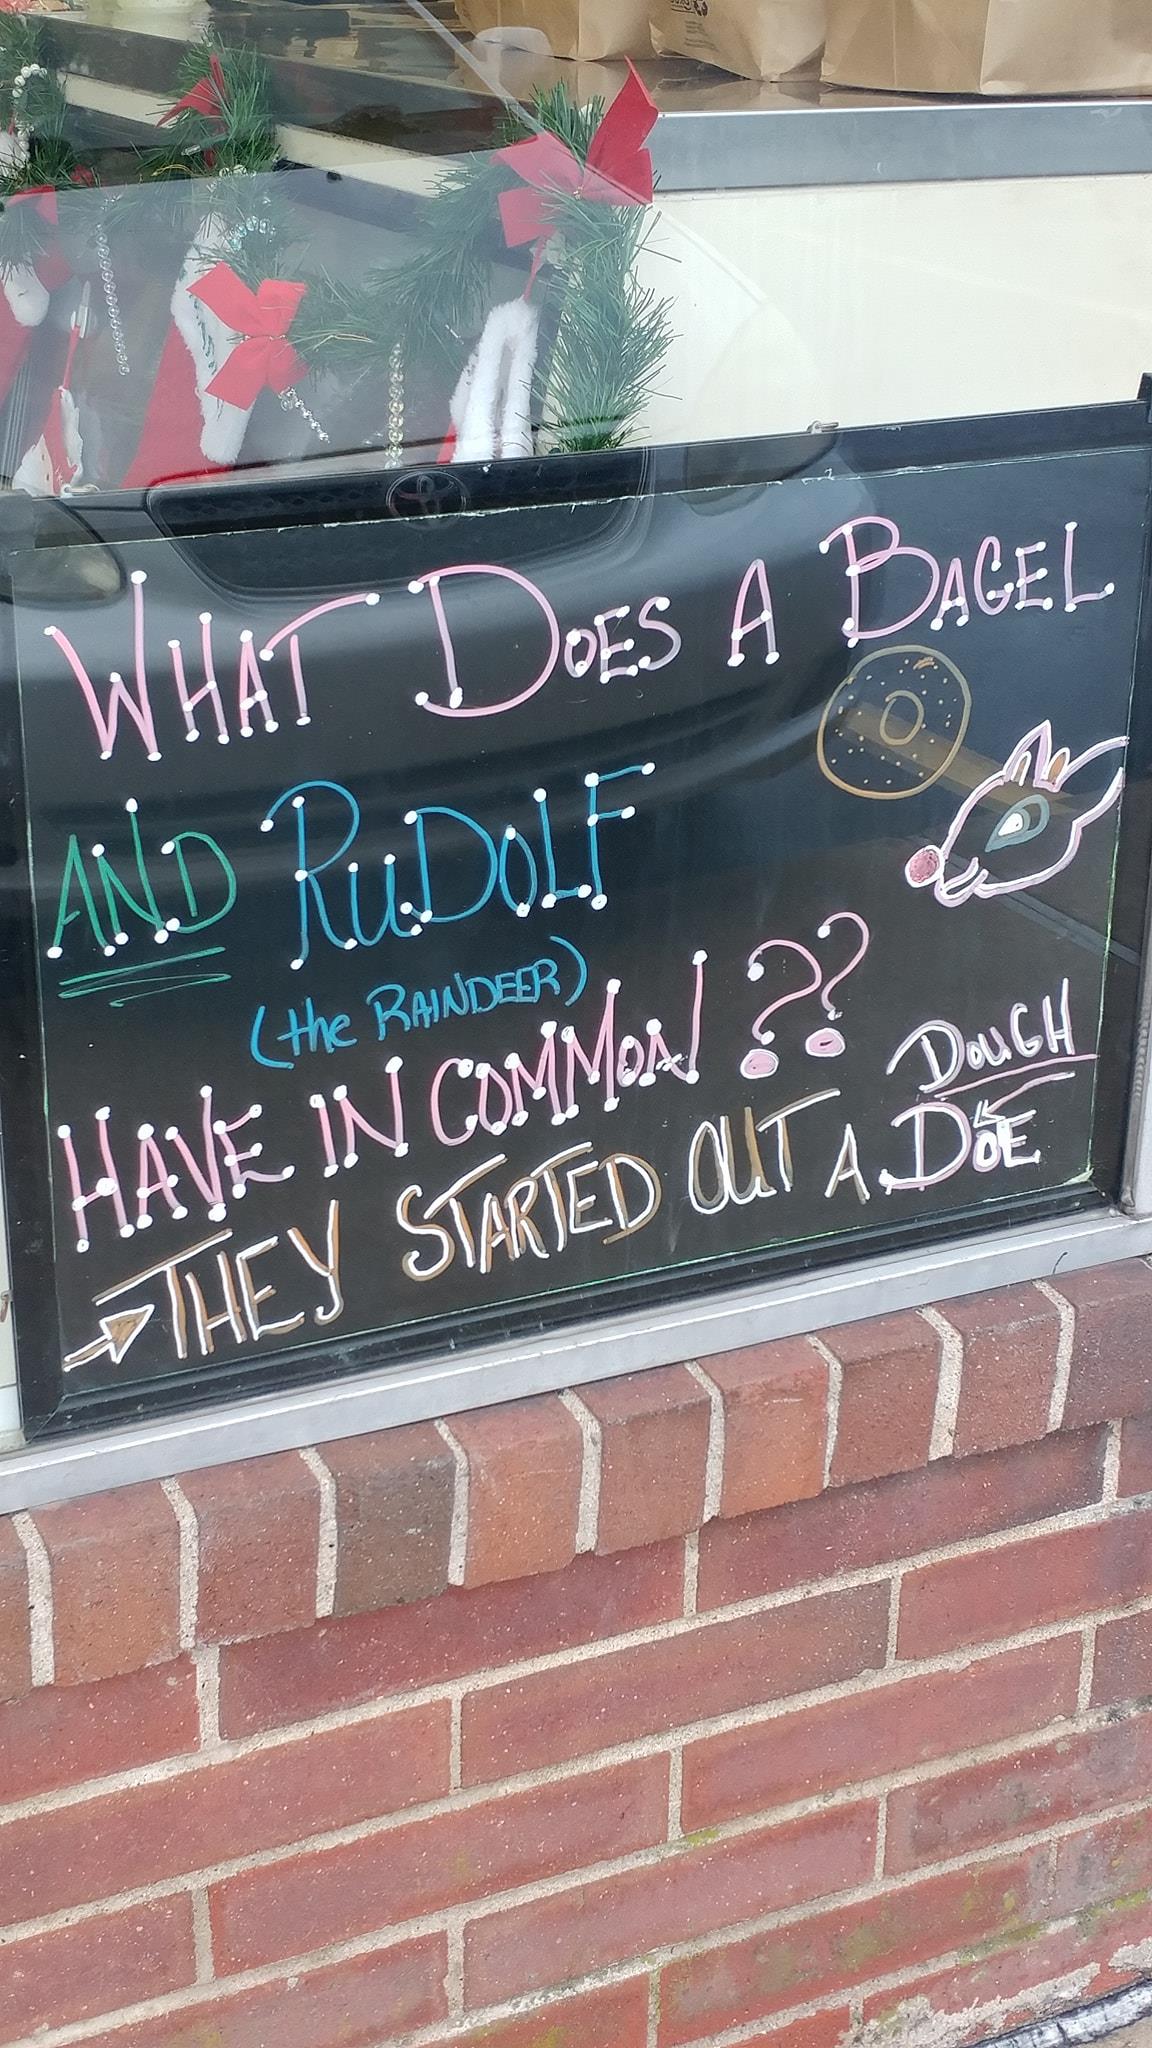 WHAT DOES A BAGEL
AND RUDOLF
(the RAINDEER)
HAVE IN COMMON ??
DOUGH
THEY STARTED OUT A DOE